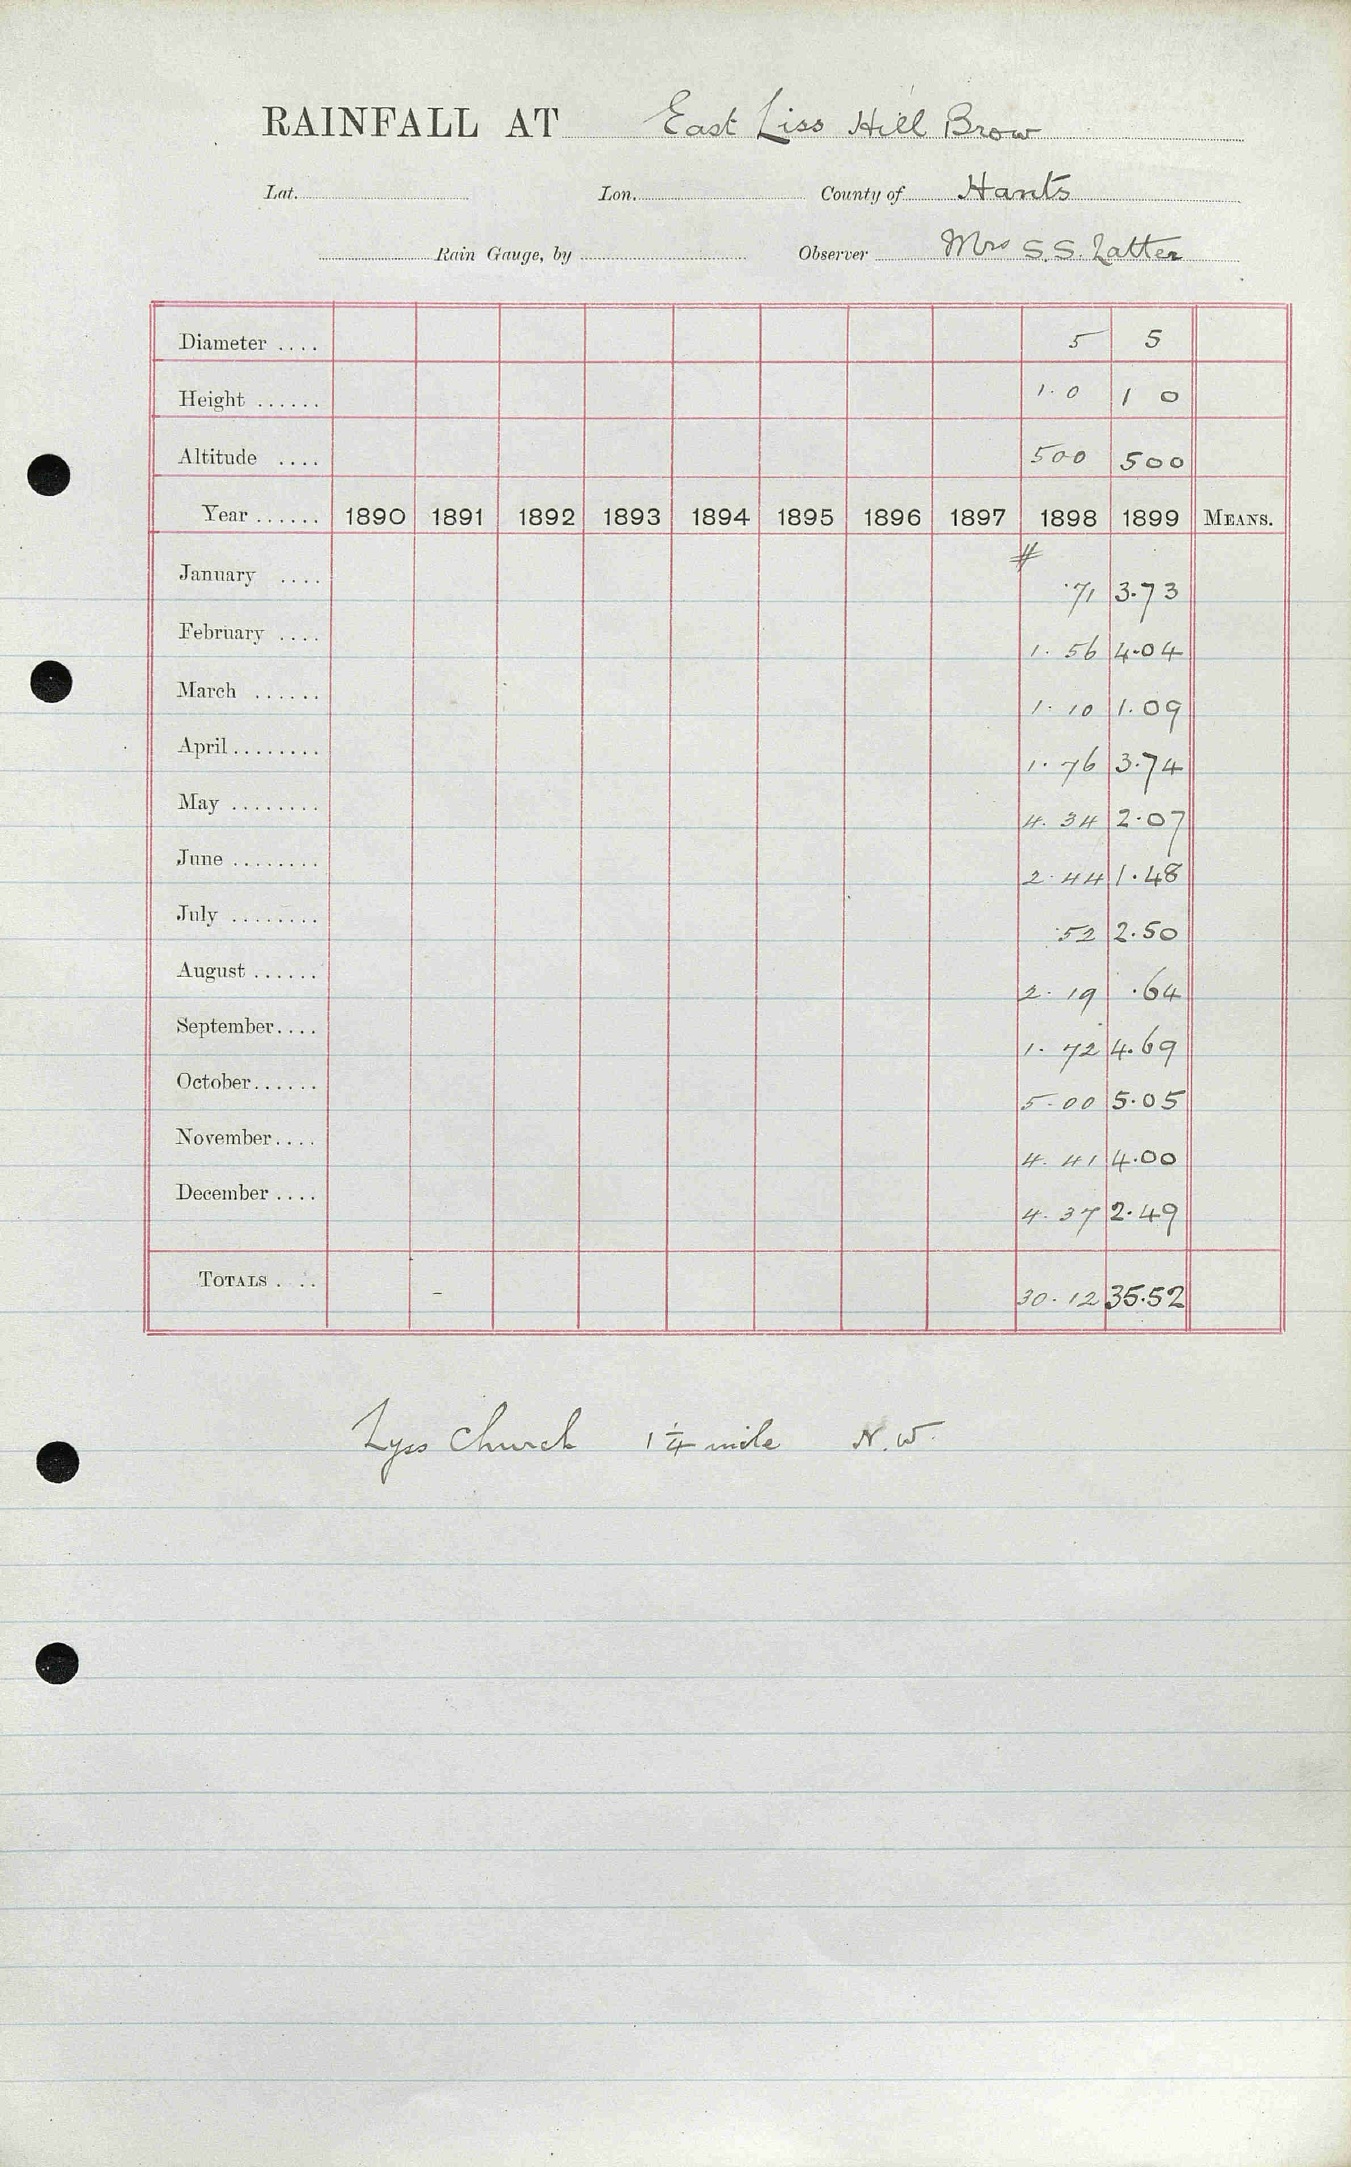 RAINFALL AT East Liss Hill Brow
Lat. Lon. County of Hants
Rain Gauge, by Observer Mrs S.S. Latter
Diameter .... 5 5
Height ...... 1.0 1 0
Altitude .... 500 500
Year ...... 1890 1891 1892 1893 1894 1895 1896 1897 1898 1899 MEANS.
#
January .... .71 3.73
February .... 1.56 4.04
March ...... 1.10 1.09
April ........ 1.76 3.74
May ........ 4.34 2.07
June ........ 2.44 1.48
July ........ .52 2.50
August ...... 2.19 .64
September.... 1.72 4.69
October...... 5.00 5.05
November.... 4.41 4.00
December .... 4.37 2.49
TOTALS . .. 30.12 35.52
Lyss Church 1¼ mile N.W.